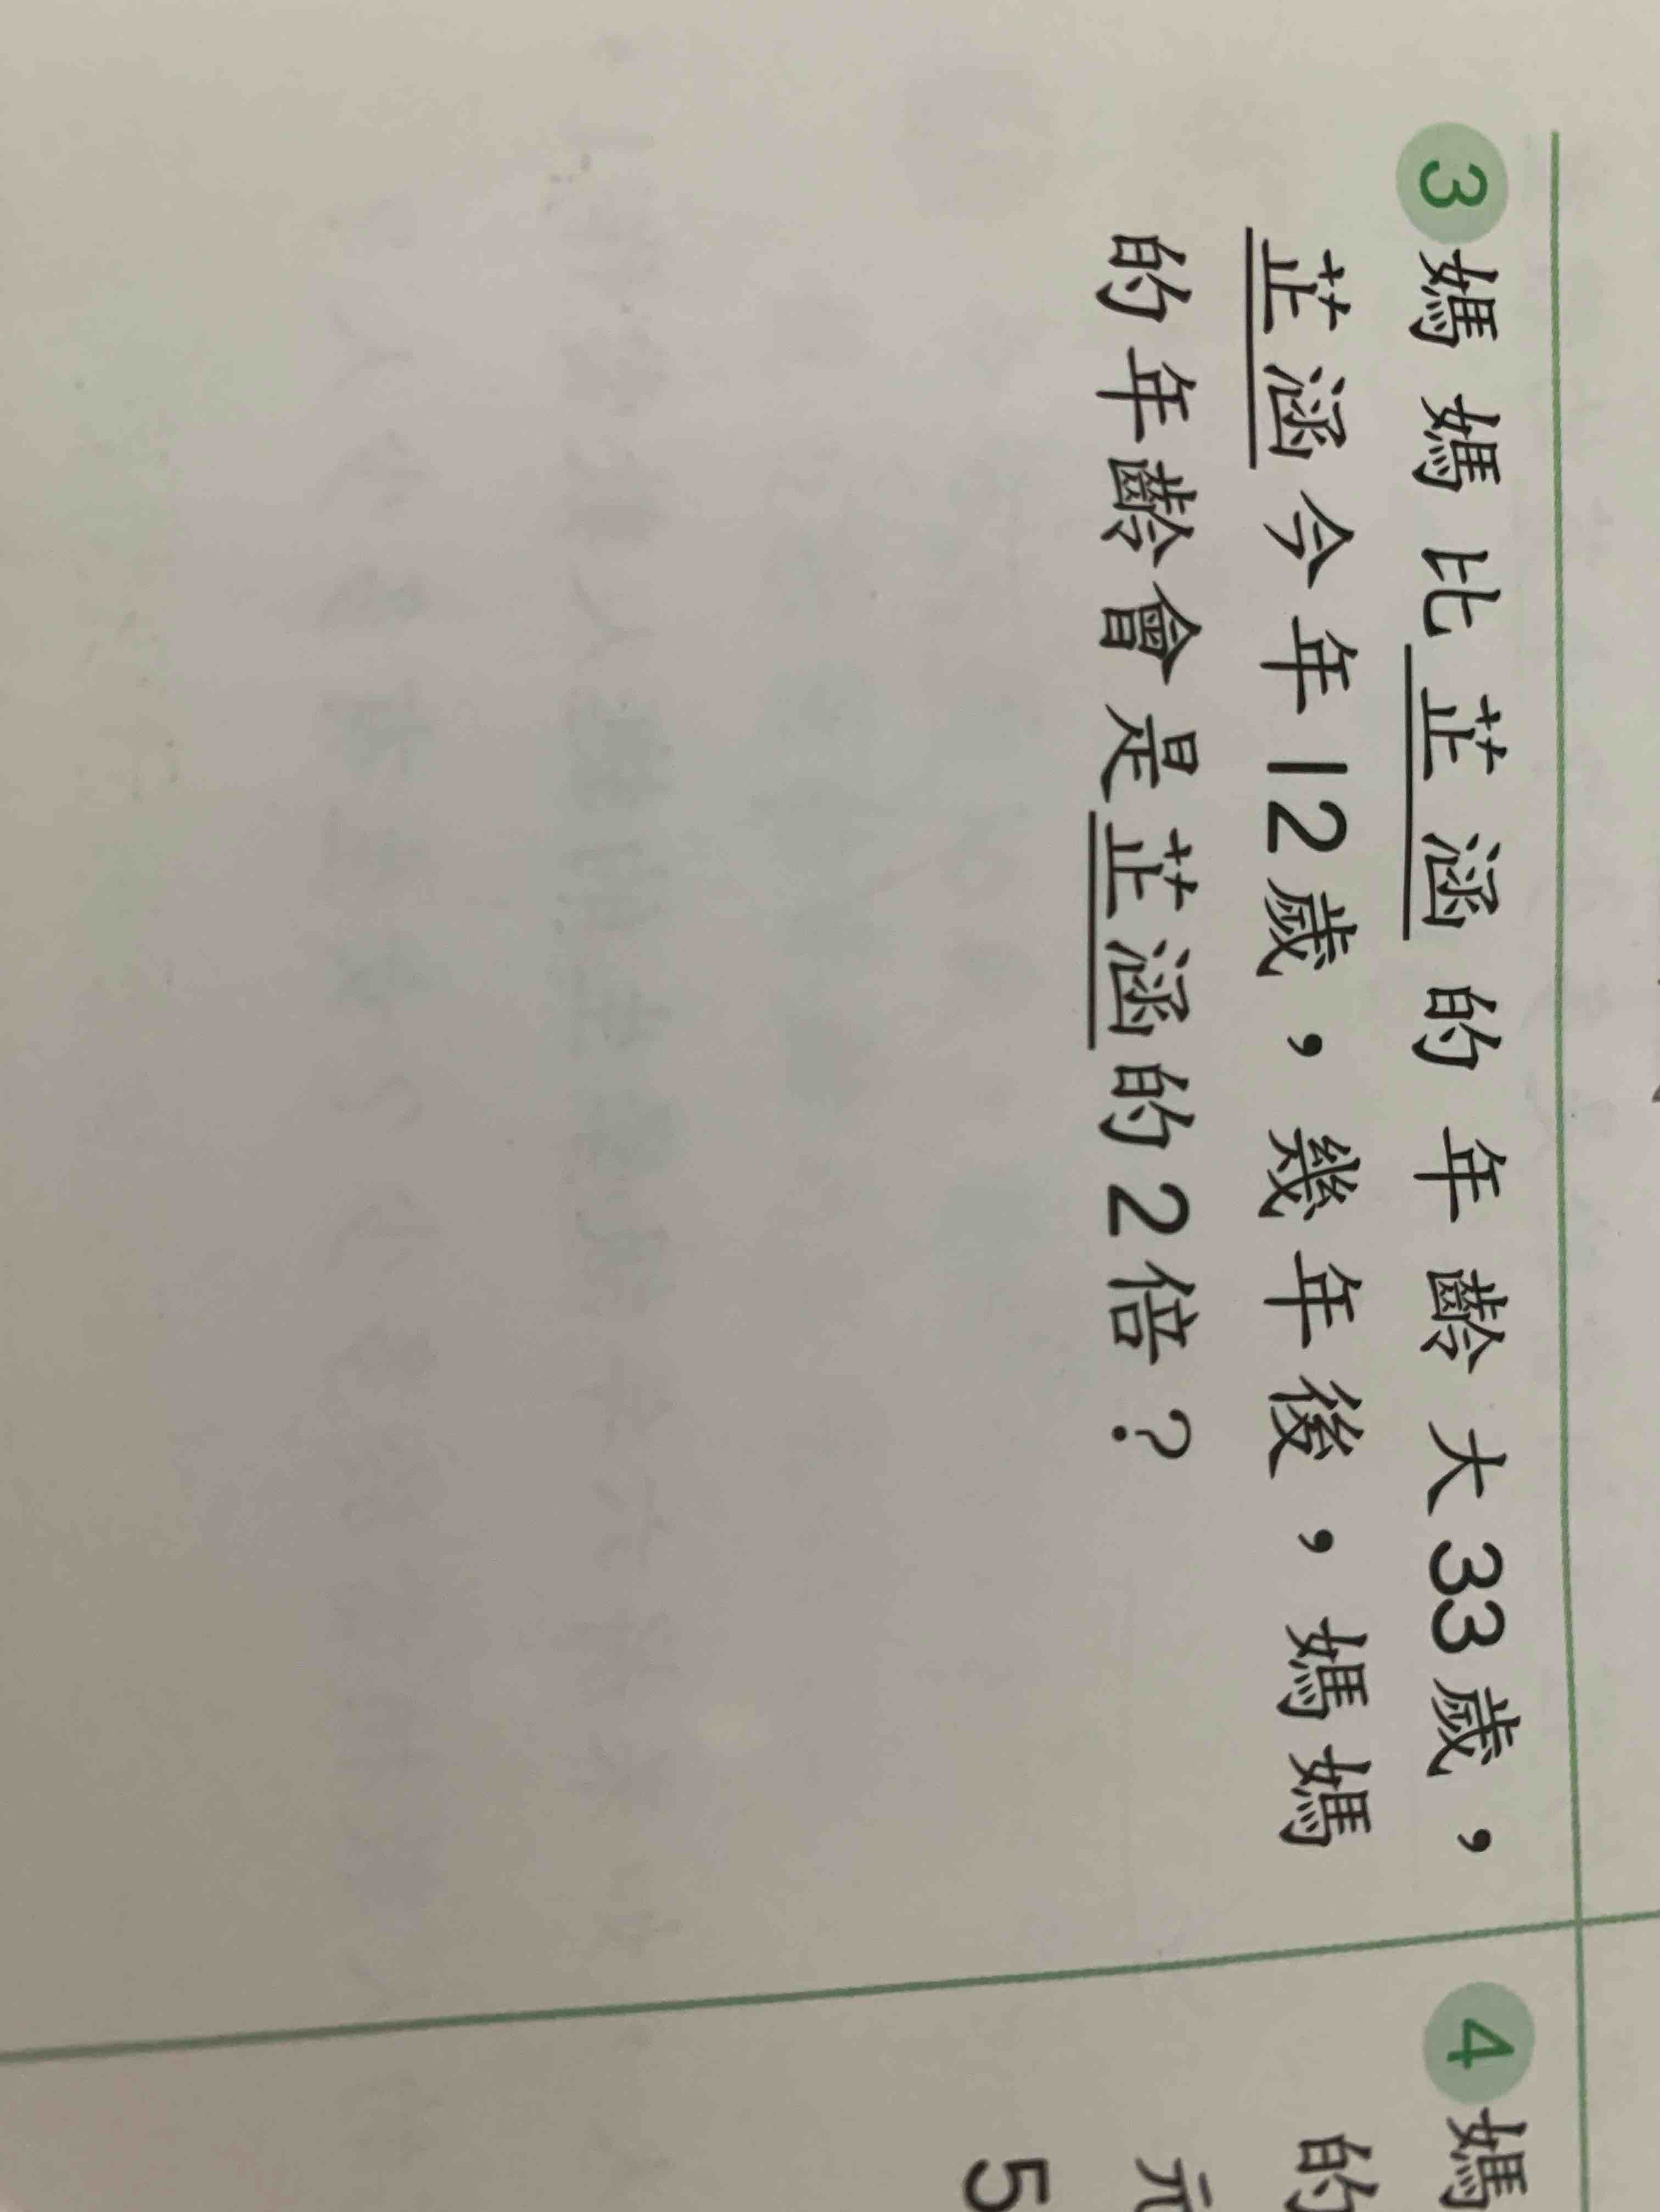 3 媽媽比芷涵的年齡大33歲，
芷涵今年12歲，幾年後，媽媽
的年齡會是芷涵的2倍？
4 媽
的
元
5